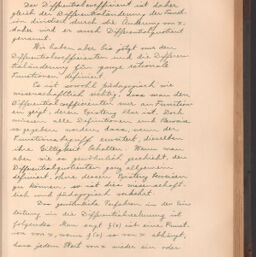 Der Differentialkoeffizient ist daher
gleich der Differentialänderung der Funk-
tion dividiert durch die Änderung von x;
daher wird er auch Differentialquotient
genannt.
Wir haben aber bis jetzt nur den
Differentialkoeffizienten und die Differen-
tialänderung für ganze rationale
Funktionen definiert.
Es ist sowohl pädagogisch wie
wissenschaftlich wichtig, dass man den
Differentialkoeffizienten nur an Funktion-
en zeigt, deren Existenz klar ist. Doch
müssen alle Definitionen und Beweise
so gegeben werden, dass, wenn der
Funktionsbegriff erweitert dieselben
ihre Giltigkeit behalten. Wenn man
aber wie es gewöhnlich geschieht, den
Differentialquotienten ganz allgemein
definiert, ohne dessen Existenz beweisen
zu können, so ist dies wissenschaft-
lich und pädagogisch verkehrt.
Das gewöhnliche Verfahren in der Ein-
leitung in die Differentialrechnung ist
folgendes. Man sagt f(x) sei eine Funkt-
ion von x, wenn f(x) so von x abhängt,
dass jedem Wert von x wieder ein oder